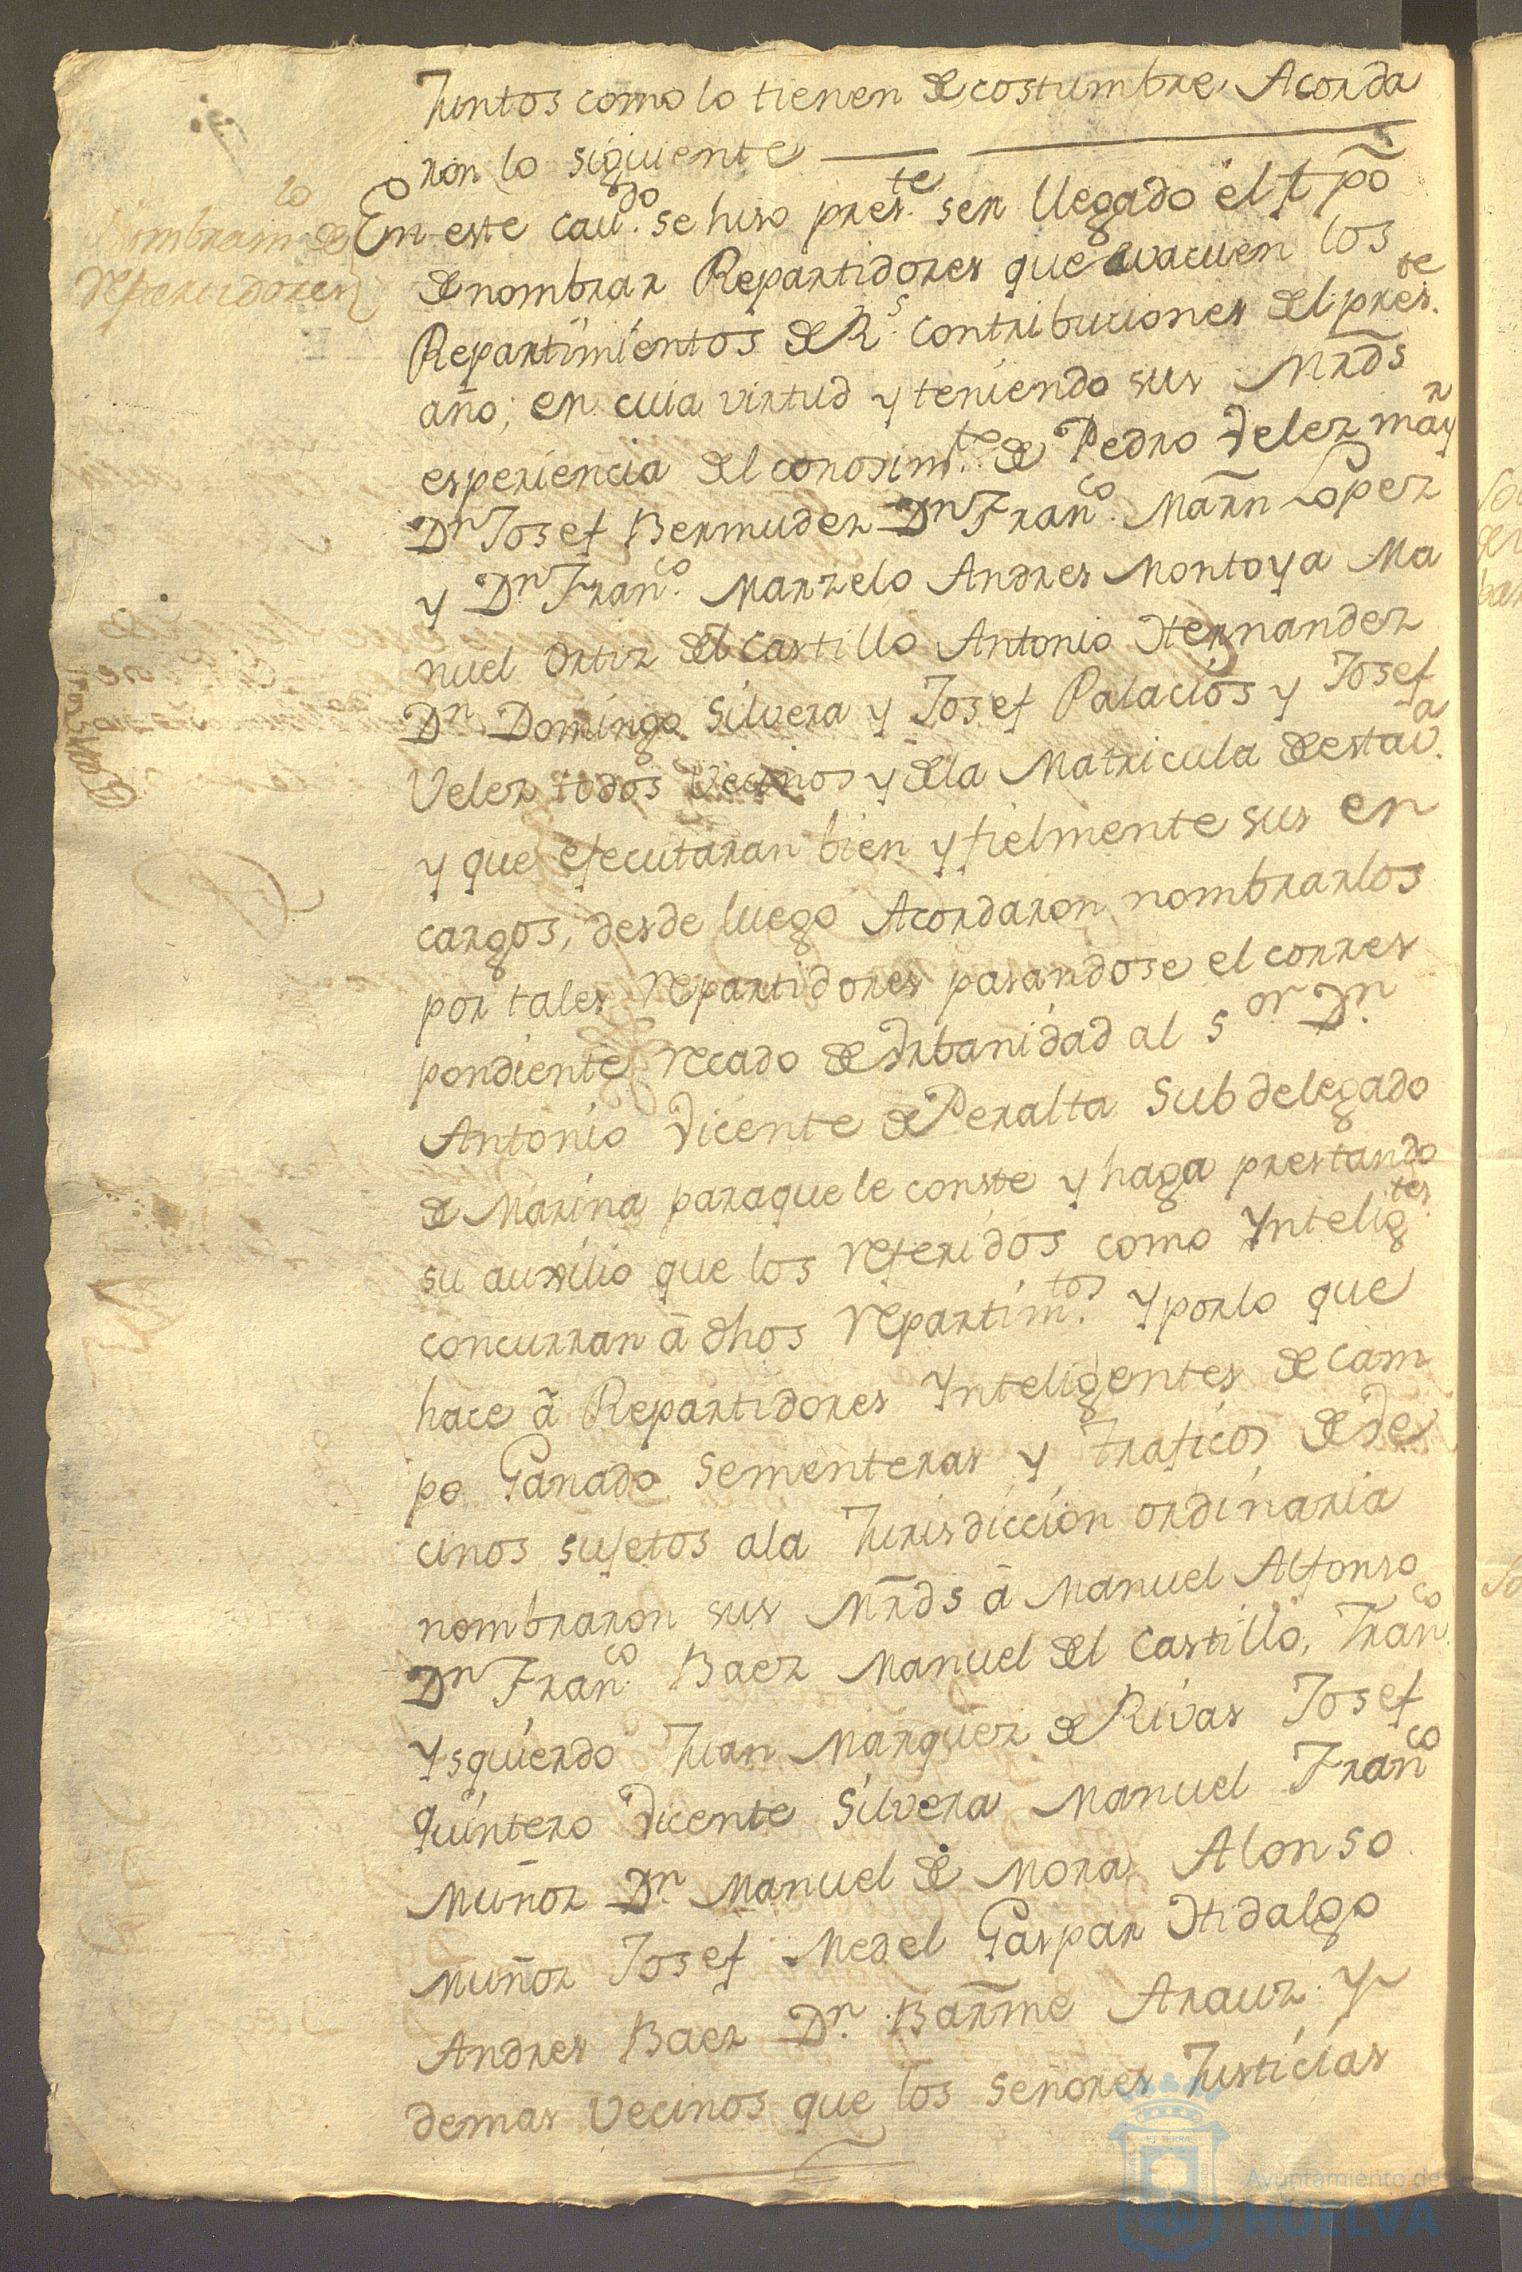 Juntos como lo tienen de costumbre Acorda
ron lo siguiente
Nombram.to de
repartidores
En este cau.do se hiso pres.te ser llegado el tpõ
de nombrar Repartidores que evacuen los
Repartimientos de R.s contribuciones del pres.te
año; en cuia virtud y teniendo sus Mrds
esperiencia del conosim.to de Pedro Velez may.r
Dn Josef Bermudez Dn Fran.co Marn Lopez
y Dn Fran.co Marzelo Andres Montoya Ma
nuel Ortiz del Castillo Antonio Hernandez
Dn Domingo Silvera y Josef Palacios y Josef
Velez todos Vecinos y de la Matricula de esta v.a
y que efecutaran bien y fielmente sus en
cargos, desde luego Acordaron nombrarlos
por tales repartidores pasandose el corres
pondiente recado de Vrbanidad al S.or Dn
Antonio Vicente de Peralta Subdelegado
de Marina paraque le conste y haga prestando
su auxilio que los referidos como Yntelig.tes
concurran â dhos repartim.tos Y por lo que
hace â Repartidores Ynteligentes de cam
po Ganado Sementeras y traficos de Ve
cinos sujetos ala Jurisdiccion ordinaria
nombraron sus Mrds â Manuel Alfonso
Dn Fran.co Baez Manuel del Castillo, Fran.co
Ysquierdo Juan Marquez de Rivas Josef
Quintero Vicente Silvera Manuel Fran.co
Muñoz Dn Manuel de Mora Alonso
Muñoz Josef Medel Gaspar Hidalgo
Andres Baez Dn Barme Arauz Y
demas Vecinos que los Señores Justicias
Ayuntamiento de
HUELVA